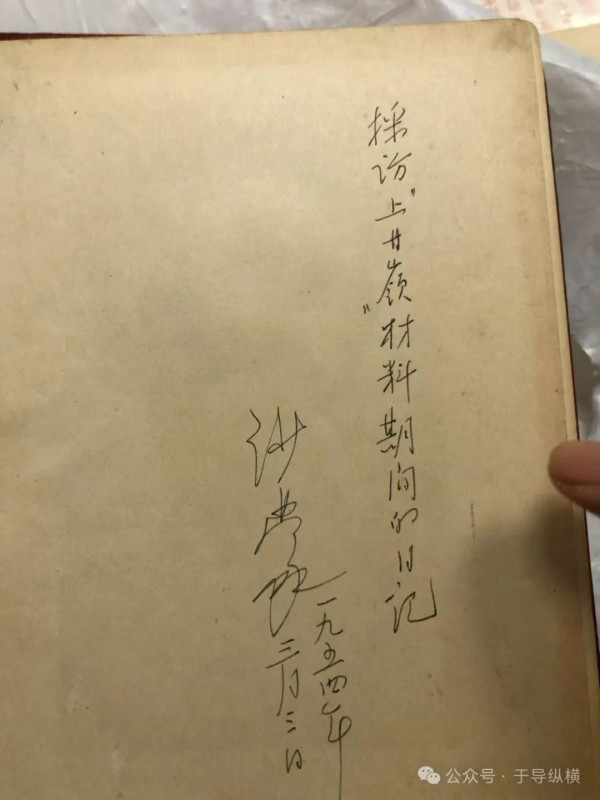 採访“上甘嶺”材料期间的日记
一九五四年
三月三日
公众号 · 于导纵横